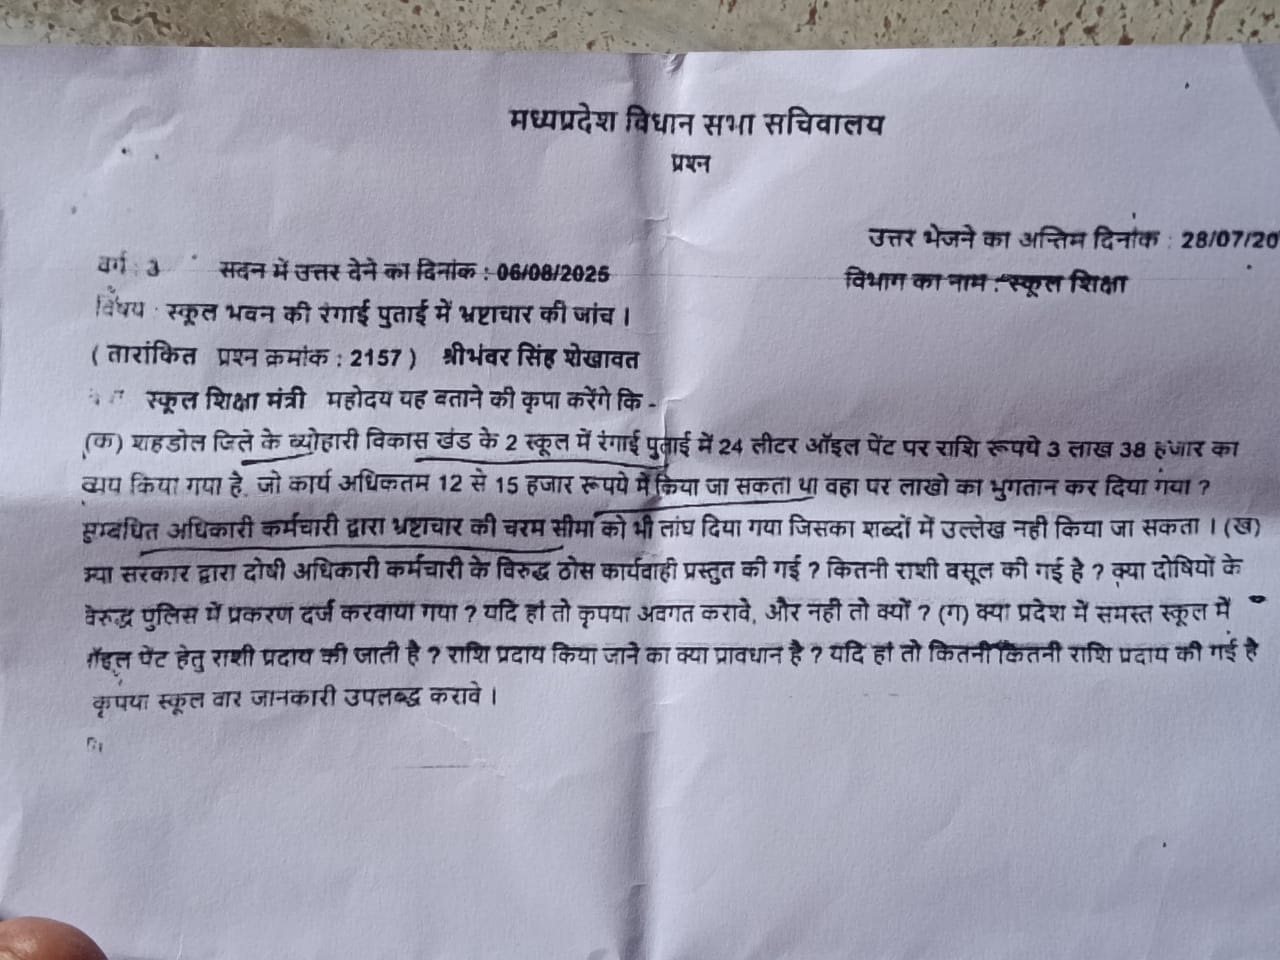 मध्यप्रदेश विधान सभा सचिवालय
प्रश्न
उत्तर भेजने का अन्तिम दिनांक : 28/07/20
वर्ग : 3 सदन में उत्तर देने का दिनांक : 06/08/2025
विभाग का नाम :- स्कूल शिक्षा
विषय : स्कूल भवन की रंगाई पुताई में भ्रष्टाचार की जांच ।
( तारांकित प्रश्न क्रमांक : 2157 ) श्रीभंवर सिंह शेखावत
स्कूल शिक्षा मंत्री महोदय यह बताने की कृपा करेंगे कि -
(क) शहडोल जिले के ब्योहारी विकास खंड के 2 स्कूल में रंगाई पुताई में 24 लीटर ऑइल पेंट पर राशि रूपये 3 लाख 38 हजार का
व्यय किया गया है, जो कार्य अधिकतम 12 से 15 हजार रूपये में किया जा सकता था वहा पर लाखो का भुगतान कर दिया गया ?
सम्बधित अधिकारी कर्मचारी द्वारा भ्रष्टाचार की चरम सीमा को भी लांघ दिया गया जिसका शब्दों में उल्लेख नही किया जा सकता । (ख)
क्या सरकार द्वारा दोषी अधिकारी कर्मचारी के विरुद्ध ठोस कार्यवाही प्रस्तुत की गई ? कितनी राशी वसूल की गई है ? क्या दोषियों के
वेरुद्ध पुलिस में प्रकरण दर्ज करवाया गया ? यदि हां तो कृपया अवगत करावे, और नही तो क्यों ? (ग) क्या प्रदेश में समस्त स्कूल में
ऑइल पेंट हेतु राशी प्रदाय की जाती है ? राशि प्रदाय किया जाने का क्या प्रावधान है ? यदि हां तो कितनी कितनी राशि प्रदाय की गई है
कृपया स्कूल वार जानकारी उपलब्द्ध करावे ।